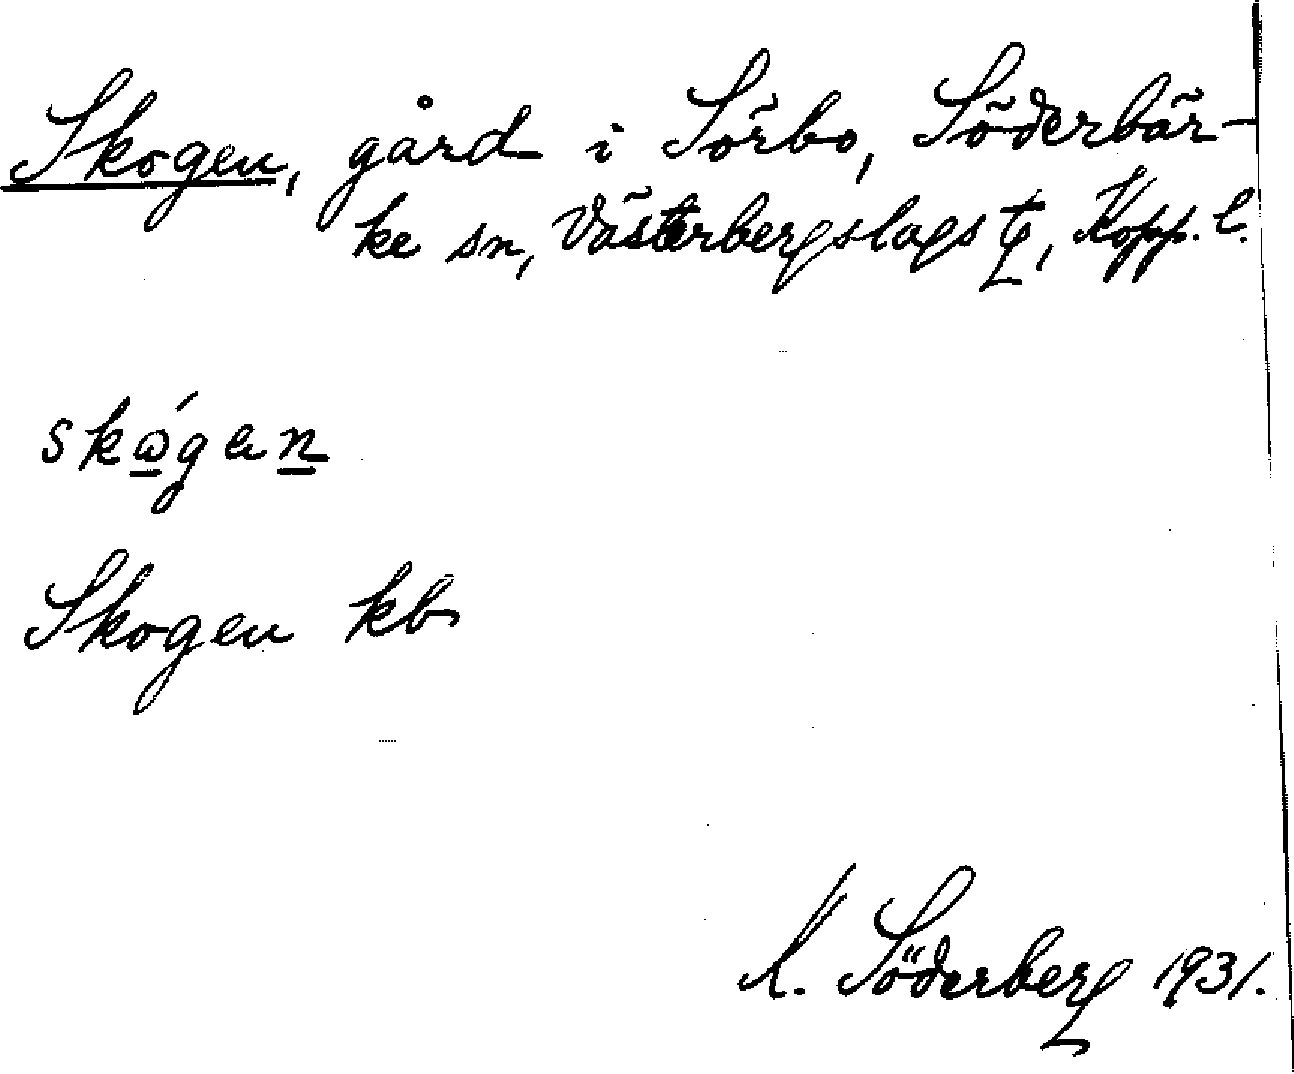 Skogen, gård i Sörbo, Söderbär-
ke sn, Västerbergslags tg, Kopp. l.
skógen
Skogen kb
Söderberg 1931.